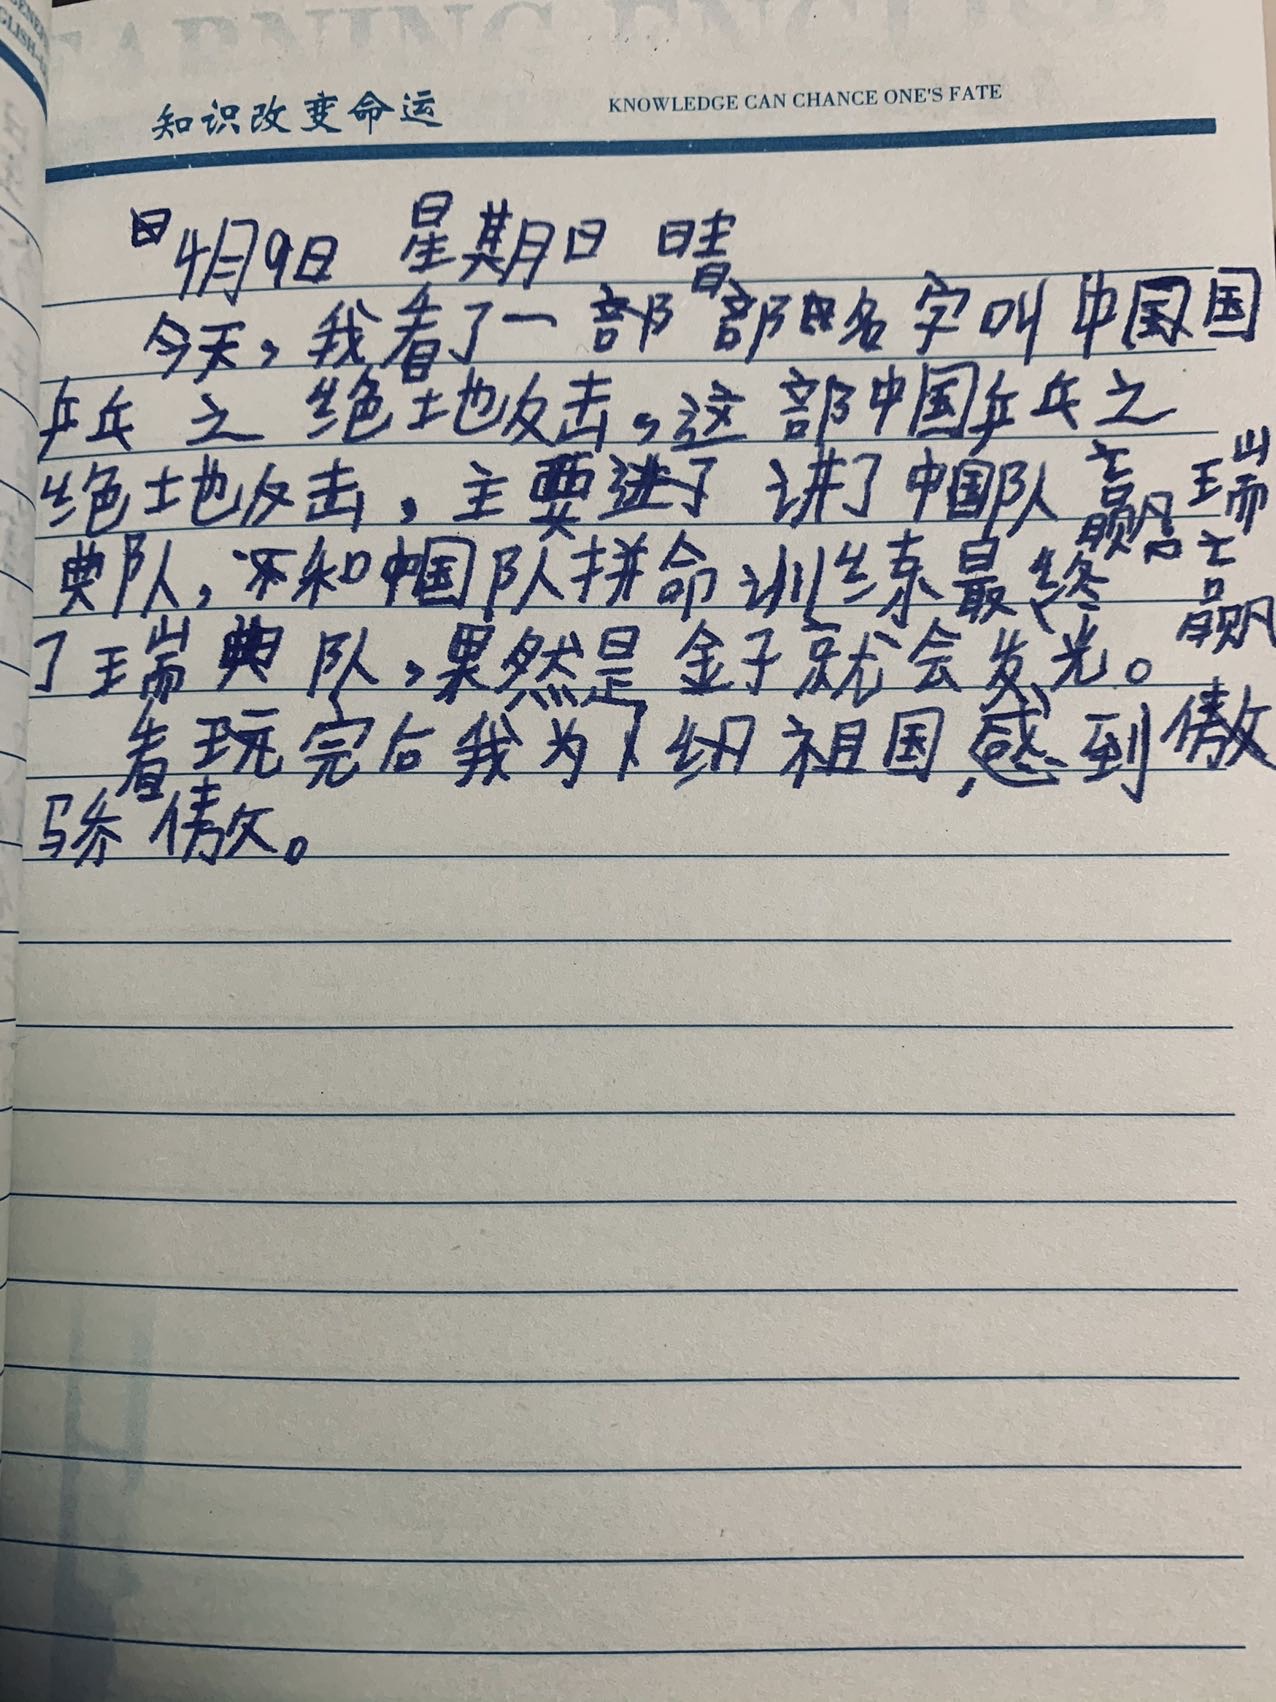 知识改变命运 KNOWLEDGE CAN CHANCE ONE'S FATE
4月9日 星期日 晴
今天，我看了一部部名字叫中国国
乒乓之绝地反击，这部中国乒乓之
绝地反击，主要讲了中国队赢瑞
典队，不和中国队拼命训练最终赢
了瑞典队，果然是金子就会发光。
看玩完后我为了祖国，感到傲
骄傲。